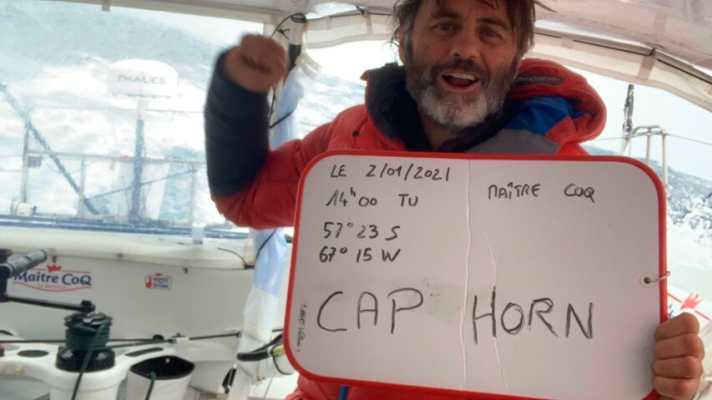 LE 2/01/2021
14h00 TU
MAÎTRE COQ
57° 23 S
67° 15 W
CAP HORN
THALES
Maître CoQ